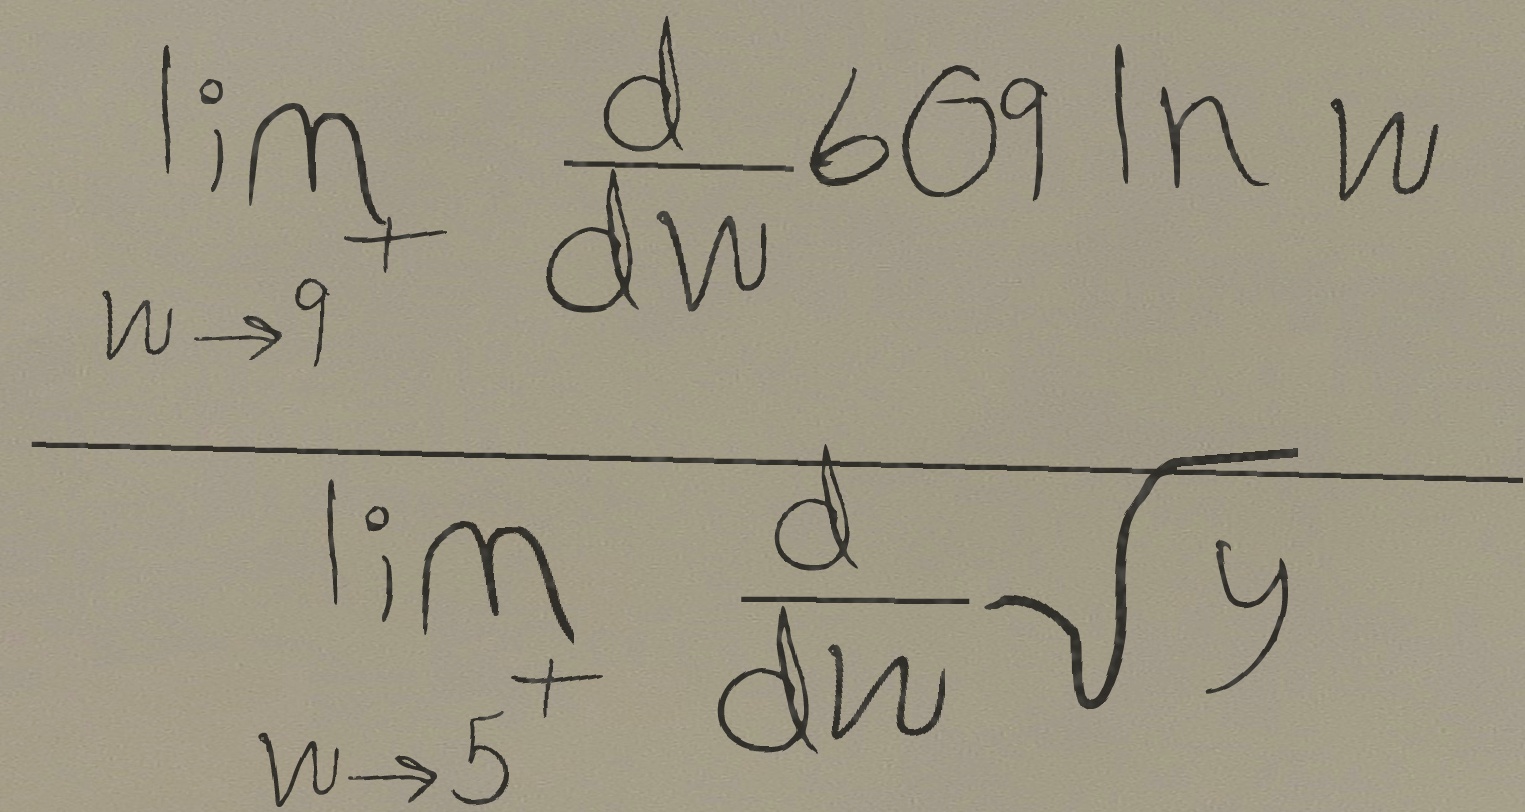 \frac{\lim_{w \to 9^+} \frac{d}{dw} 609 \ln w}{\lim_{w \to 5^+} \frac{d}{dw} \sqrt{y}}